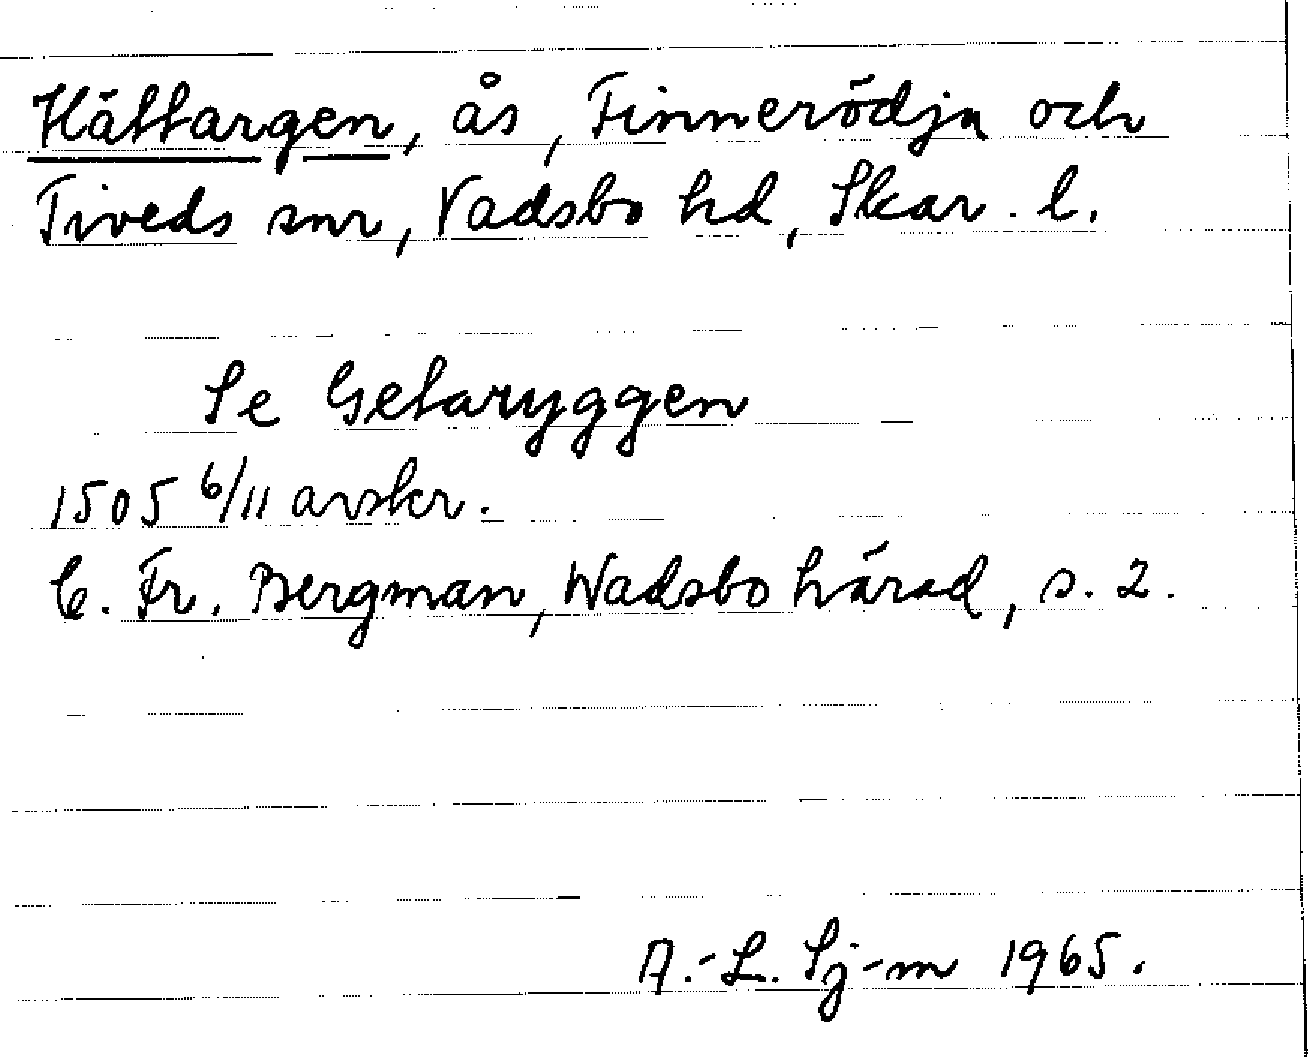 Hättargen, ås, Finnerödja och
Tiveds snr, Vadsbo hd, Skar. l.
Se Getaryggen
1505 6/11 avskr.
C. Fr. Bergman, Wadsbo härad, s. 2.
A.-L. Sj-m 1965.